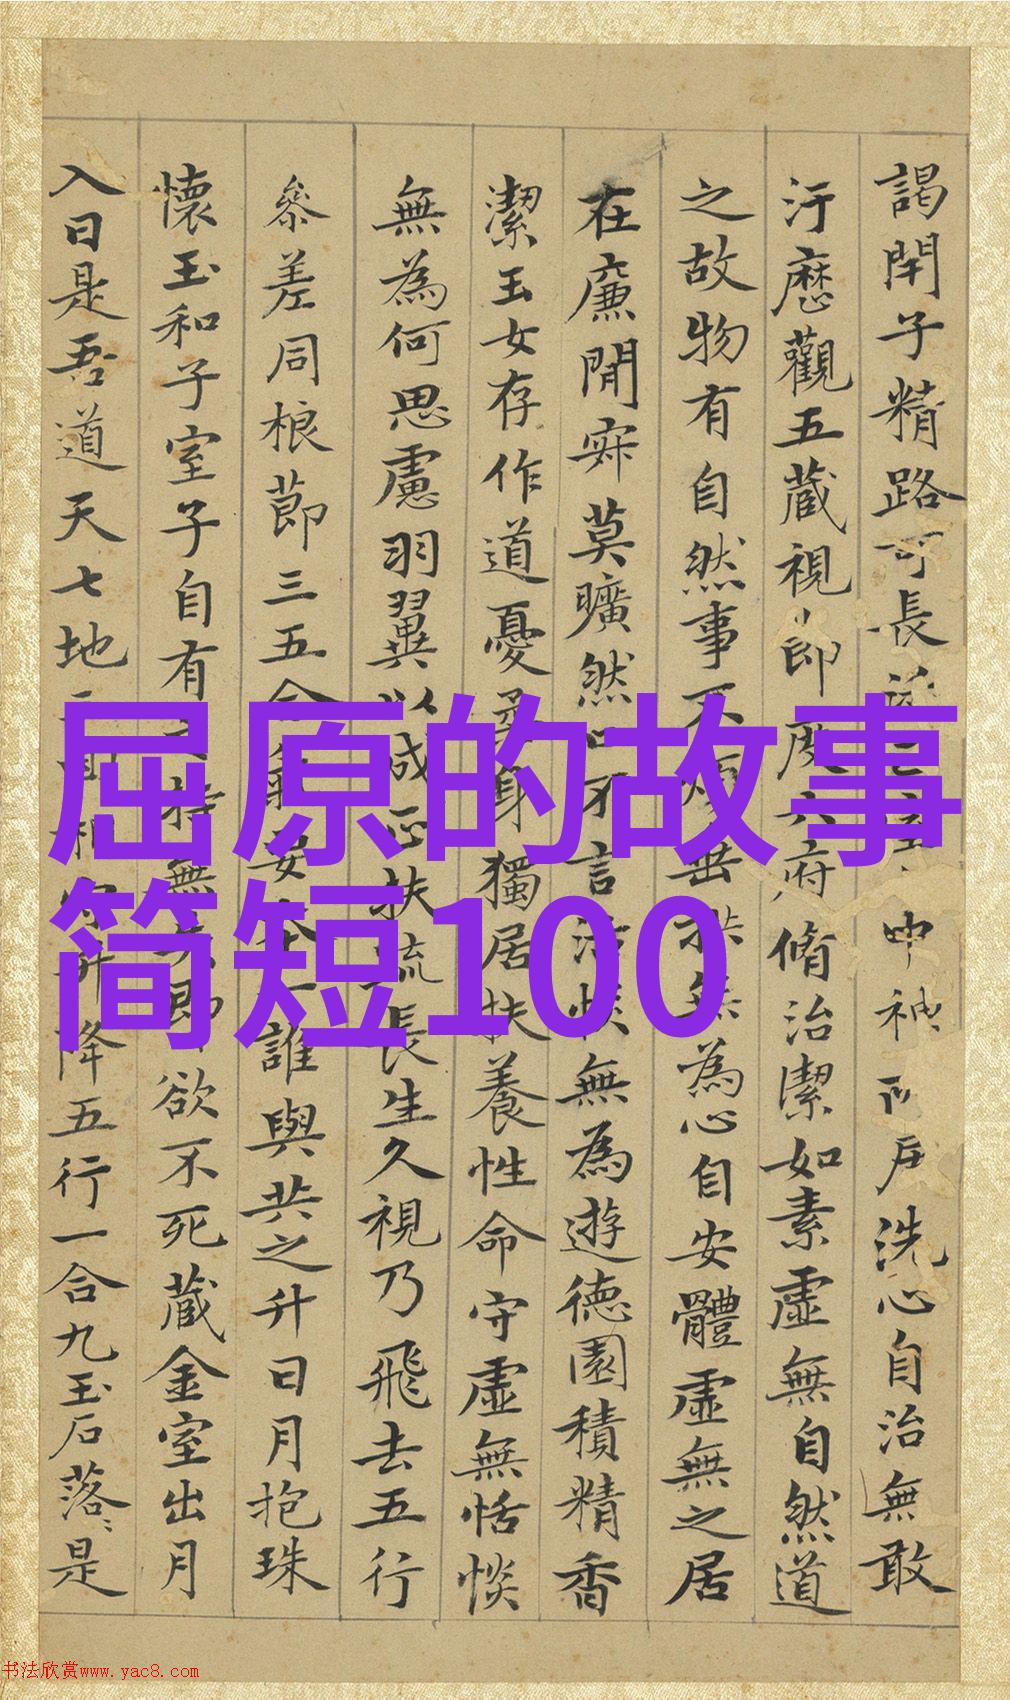 謁閇子精路可長
洗心自治無敢
汙歷觀五藏視
節度六府脩治潔如素虛無自然道
之故物有自然事不煩
無為心自安體虛無之居
在廉閒寂莫曠然
不言
無為遊德園積精香
潔玉女存作道憂柔身獨居扶養性命守虛無恬惔
無為何思慮羽翼以成正扶疏長生久視乃飛去五行
參差同根節三五合氣要本一誰與共之升日月抱珠
懷玉和子室子自有之持無失即
欲不死藏金室出月
入日是吾道天七地三回相守升降五行一合九玉石落〻是
屈原的故事
简短100
书法欣赏www.yac8.com